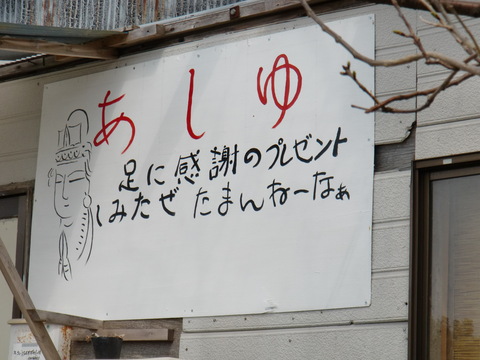 あしゆ
足に感謝のプレゼント
しみたぜ たまんねーなぁ